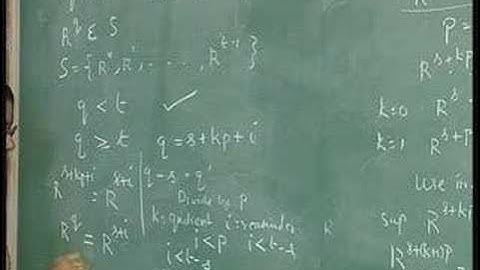 R^q ε S
S = {R^0, R^1, ..., R^{t-1}}
q < t ✓
q ≥ t q = s+kp+i
R^{s+kp+i} = R^{s+i}
q-s = q'
Divide by p
k: quotient i: remainder
i < p i < t-s
R^q = R^{s+i}
i < t-s
p =
R^{s+kp
k=0 R^s
k=1 R^{s+p
Use in
sup R^{s+k
R^{s+(k+1)p